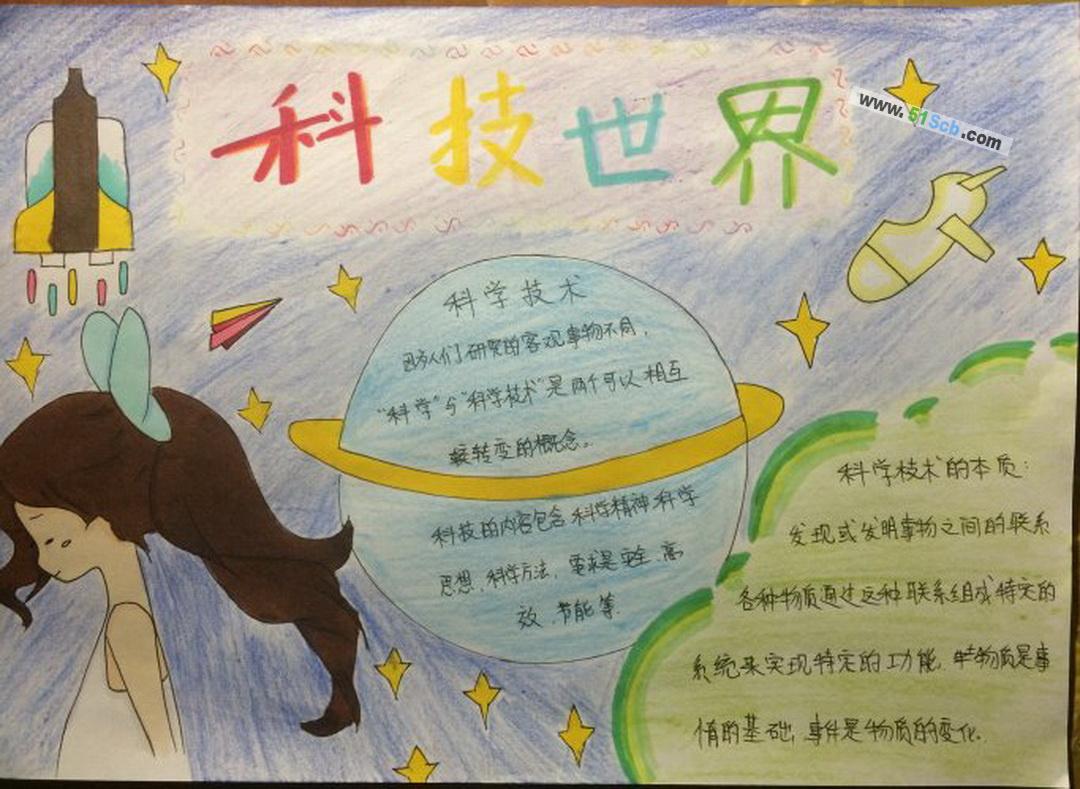 科技世界
www.51Scb.com
科学技术
因为人们研究的客观事物不同,
"科学"与"科学技术"是两个可以相互
转变的概念。
科技的内容包含科学精神.科学
思想.科学方法,要求是安全.高
效.节能等.
科学技术的本质:
发现或发明事物之间的联系
各种物质通过这种联系组成特定的
系统来实现特定的功能.物质是事
情的基础,事件是物质的变化.